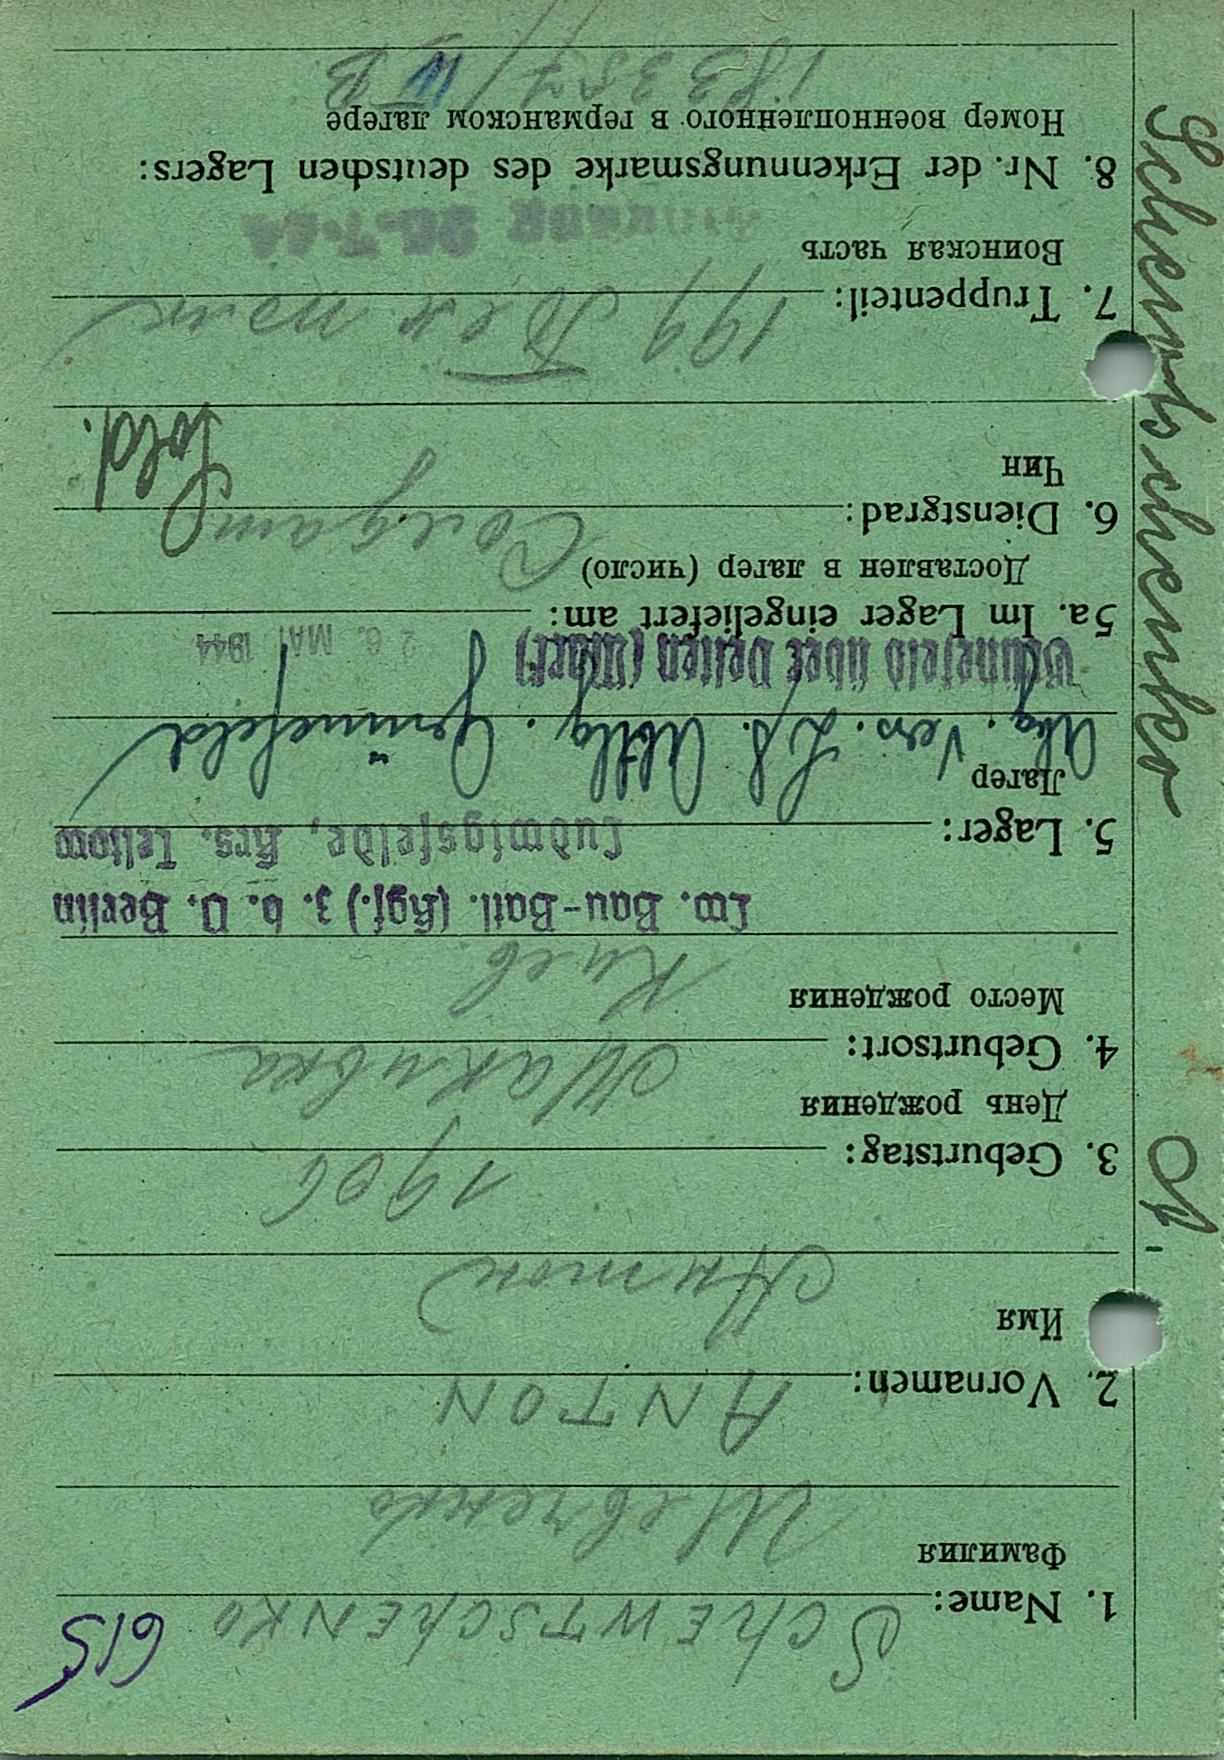 615
1. Name: SCHEWTSCHENKO
Фамилия Шевченко
2. Vornamen: ANTON
Имя Антон
3. Geburtstag: 1906
День рождения
4. Geburtsort: Макивка
Место рождения Киев.
Lw. Bau-Batl. (Kgf.) z. b. V. Berlin
5. Lager: Ludwigsfelde, Krs. Teltow
Лагер
Abg. Vers. Abtlg. Grünefeld
Grünefeld über Velten (Mark)
26. MAI 1944
5a. Im Lager eingeliefert am:
Доставлен в лагер (число)
6. Dienstgrad: Солдат Sold.
Чин
7. Truppenteil: 199
Воинская часть
8. Nr. der Erkennungsmarke des deutschen Lagers:
Номер военнопленного в германском лагере
183357/IV B
Schewtschenko A.